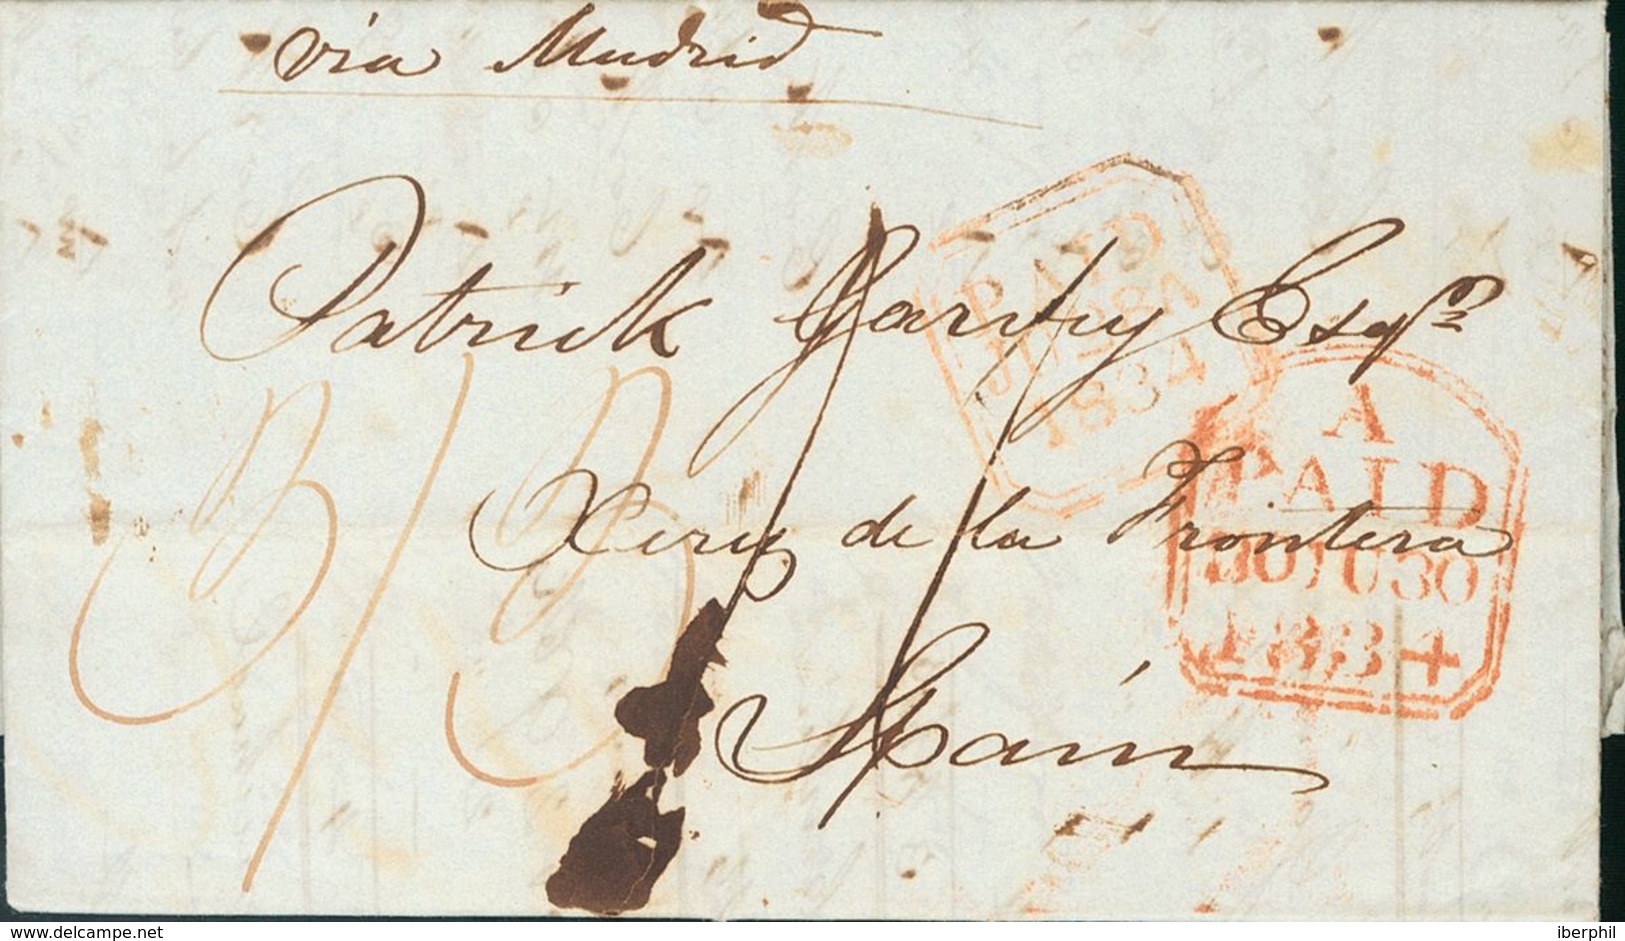 via Madrid
Patrick Garvey Esqre
PAID
JU 28
1834
A
PAID
30 JU 30
1834
Xerez de la Frontera
3/3
Spain
delcampe.net
iberphil